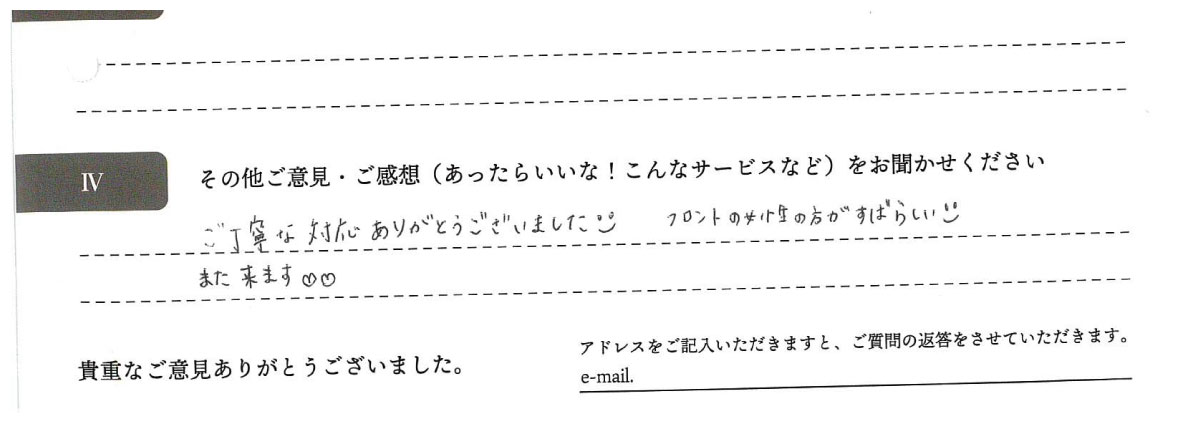 IV
その他ご意見・ご感想（あったらいいな！こんなサービスなど）をお聞かせください
ご丁寧な対応ありがとうございました フロントの女性の方がすばらしい
また来ます♡♡
貴重なご意見ありがとうございました。
アドレスをご記入いただきますと、ご質問の返答をさせていただきます。
e-mail.